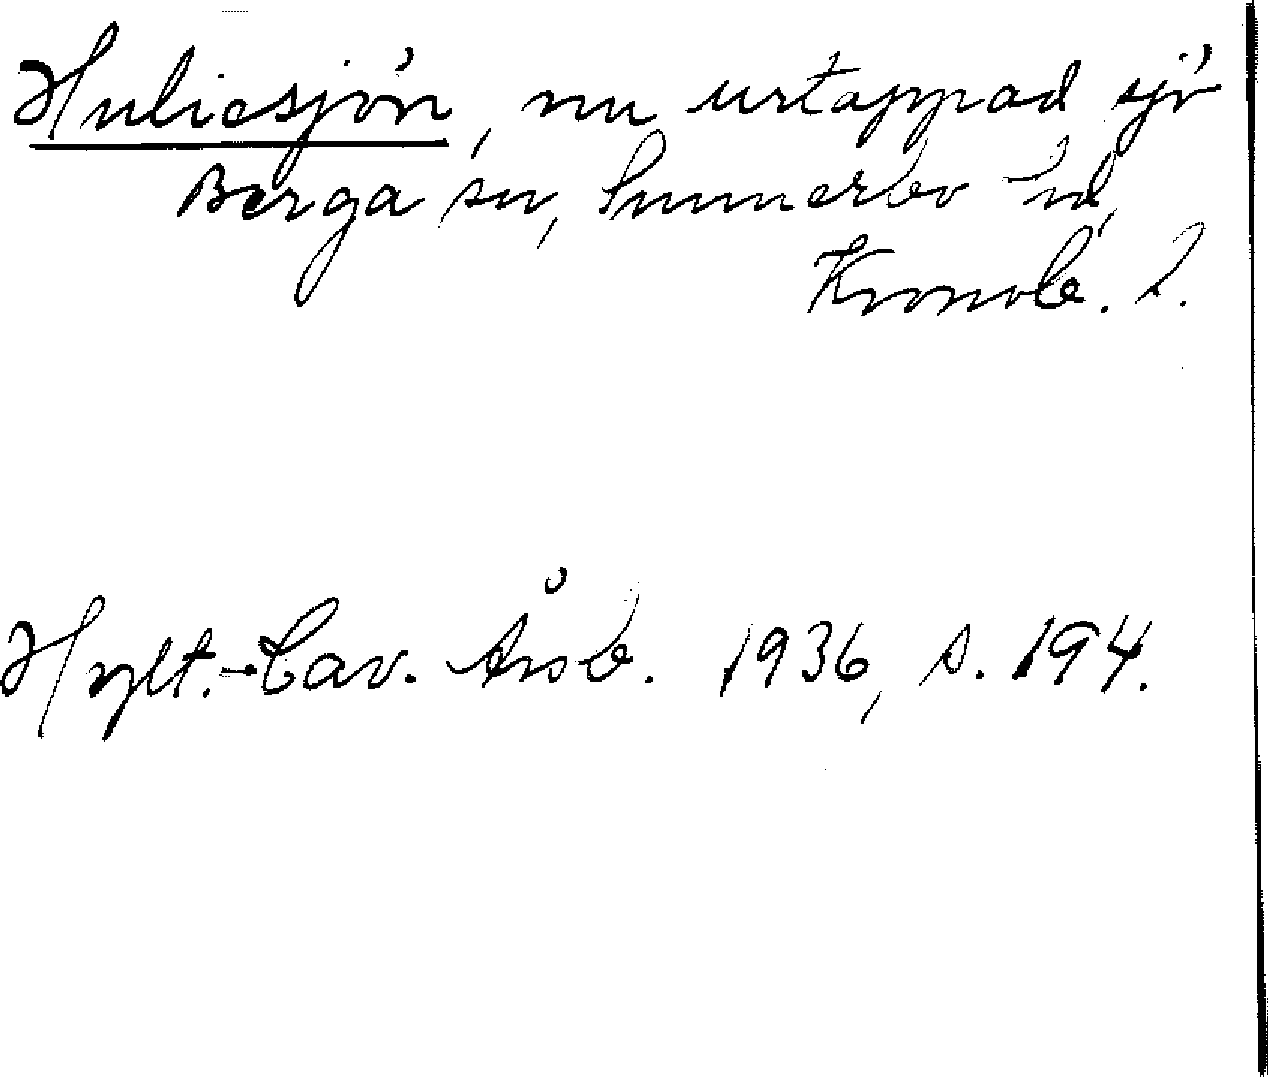 Huliesjön, nu urtappad sjö
Berga sn, Sunnerbo hd,
Kronob. l.
Hylt.-Cav. Årsb. 1936, s. 194.